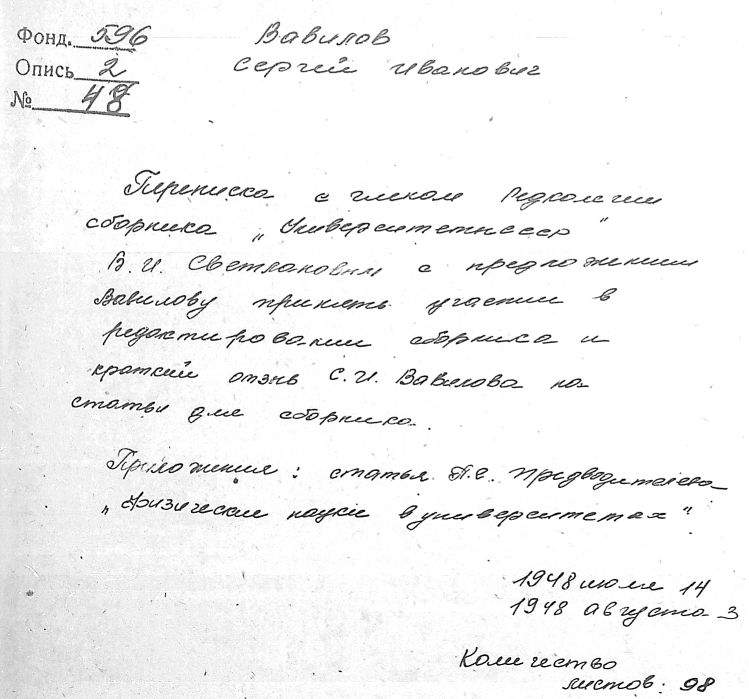 Фонд. 596
Опись 2
№ 48
Вавилов
Сергей Иванович
Переписка с членом Редколегии
сборника „Университеты СССР"
В.И. Светлановым с предложением
Вавилову принять участие в
редактировании сборника и
краткий отзыв С.И. Вавилова на
статьи для сборника.
Приложения: статья А.С. Предводителева
„Физические науки в университетах"
1948 июля 14
1948 августа 3
Количество
листов. 98